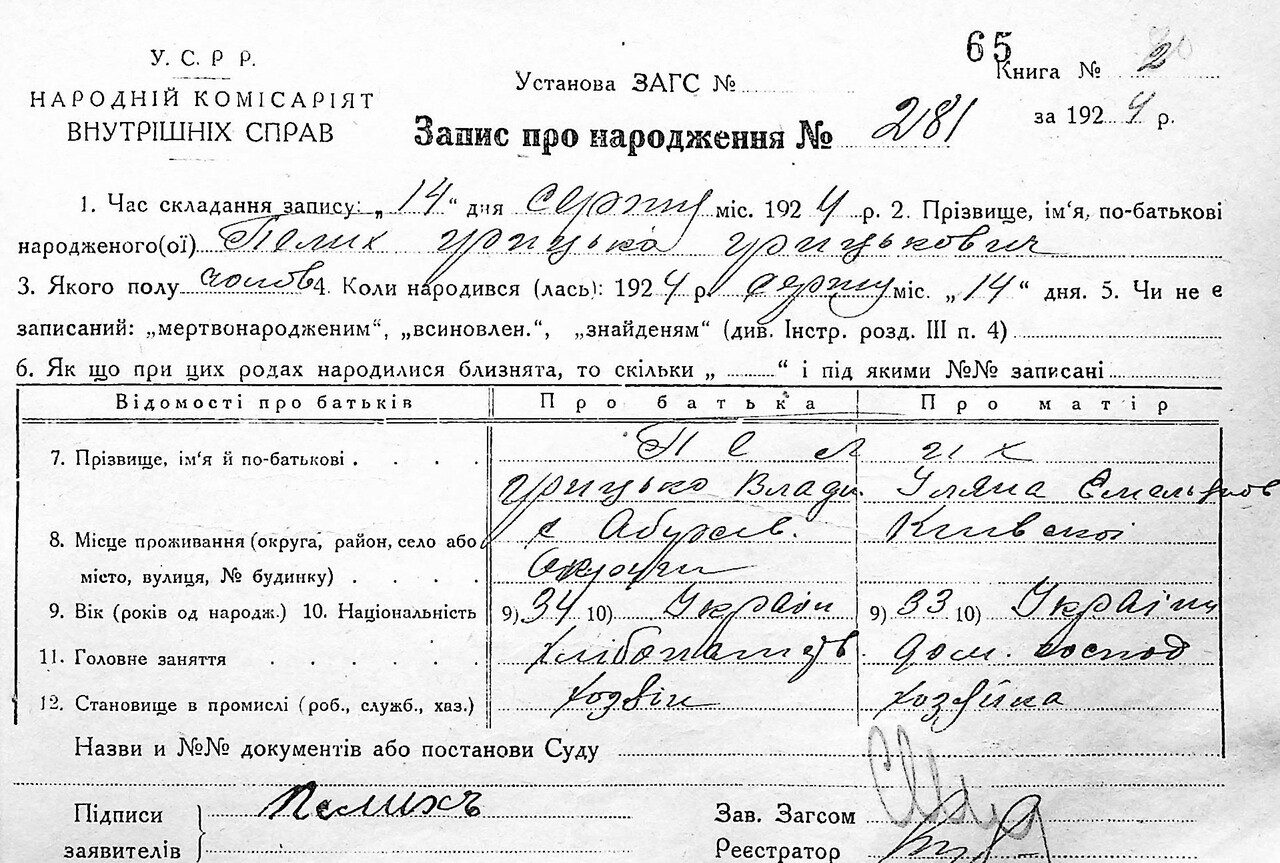 65
У. С. Р Р.
НАРОДНІЙ КОМІСАРІЯТ
ВНУТРІШНІХ СПРАВ
Установа ЗАГС №
Книга № 2
за 1924 р.
Запис про народження № 281
1. Час складання запису: „14“ дня серпня міс. 1924 р. 2. Прізвище, ім'я, по-батькові
народженого(ої) Пелих Грицько Грицькович
3. Якого полу чолов 4. Коли народився (лась): 1924 р. серпня міс. „14“ дня. 5. Чи не є
записаний: „мертвонародженим“, „всиновлен.“, „знайденям“ (див. Інстр. розд. III п. 4)
6. Як що при цих родах народилися близнята, то скільки „ “ і під якими №№ записані
Відомості про батьків Про батька Про матір
7. Прізвище, ім'я й по-батькові . . . . Пелих
Грицько Влади. Уляна Омельянов
8. Місце проживання (округа, район, село або с Абухів. Київської
місто, вулиця, № будинку) . . . . Округи
9. Вік (років од народж.) 10. Національність 9) 34 10) Україн 9) 33 10) Україн
11. Головне заняття . . . . . Хлібопашув дом. господ
12. Становище в промислі (роб., служб., хаз.) Хозяїн Хозяйка
Назви и №№ документів або постанови Суду
Підписи Пелихъ
заявителів
Зав. Загсом
Реєстратор